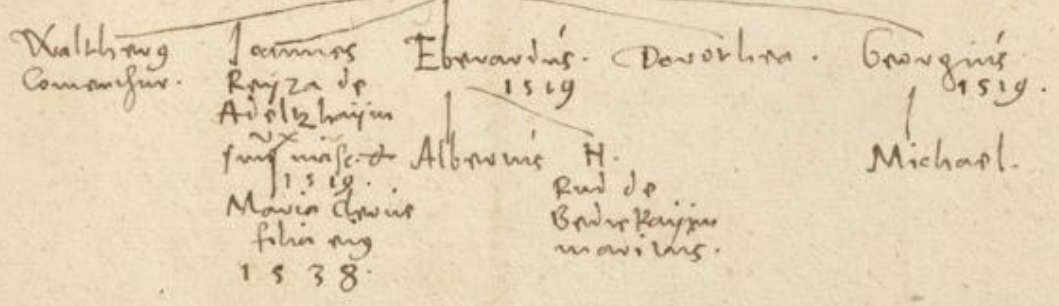 Waltherus
Comenthur.
Joannes
Reyza de
Adeltzhaÿm
masc. &
1519.
Maria
filia eius
1538.
Eberardus.
1519
Albertus
N.
Rud de
maritus.
Dorothea.
Georgius
1519.
Michael.